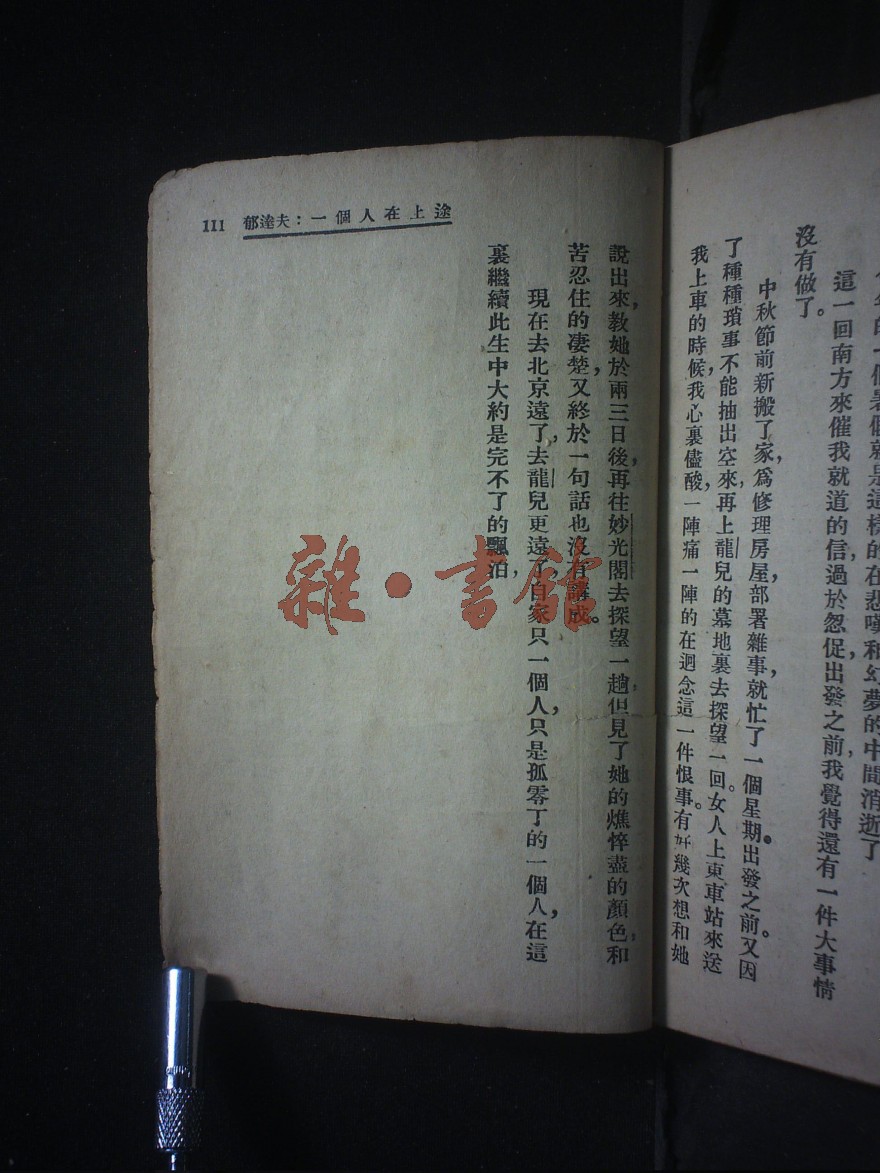 111 郁達夫：一個人在上途
年的一個暑假就是這樣的在悲嘆和幻夢的中間消逝了
這一回南方來催我就道的信，過於忽促，出發之前，我覺得還有一件大事情
沒有做了。
中秋節前新搬了家，爲修理房屋，部署雜事，就忙了一個星期。出發之前，又因
了種種瑣事，不能抽出空來，再上龍兒的墓地裏去探望一回。女人上東車站來送
我上車的時候，我心裏儘酸一陣痛一陣的在迴念這一件恨事。有好幾次想和她
說出來，教她於兩三日後，再往妙光閣去探望一趟，但見了她的憔悴盡的顏色，和
苦忍住的凄楚，又終於一句話也沒有講成。
現在去北京遠了，去龍兒更遠了，自家只一個人，只是孤零丁的一個人，在這
裏繼續此生中大約是完不了的飄泊，
雜·書館